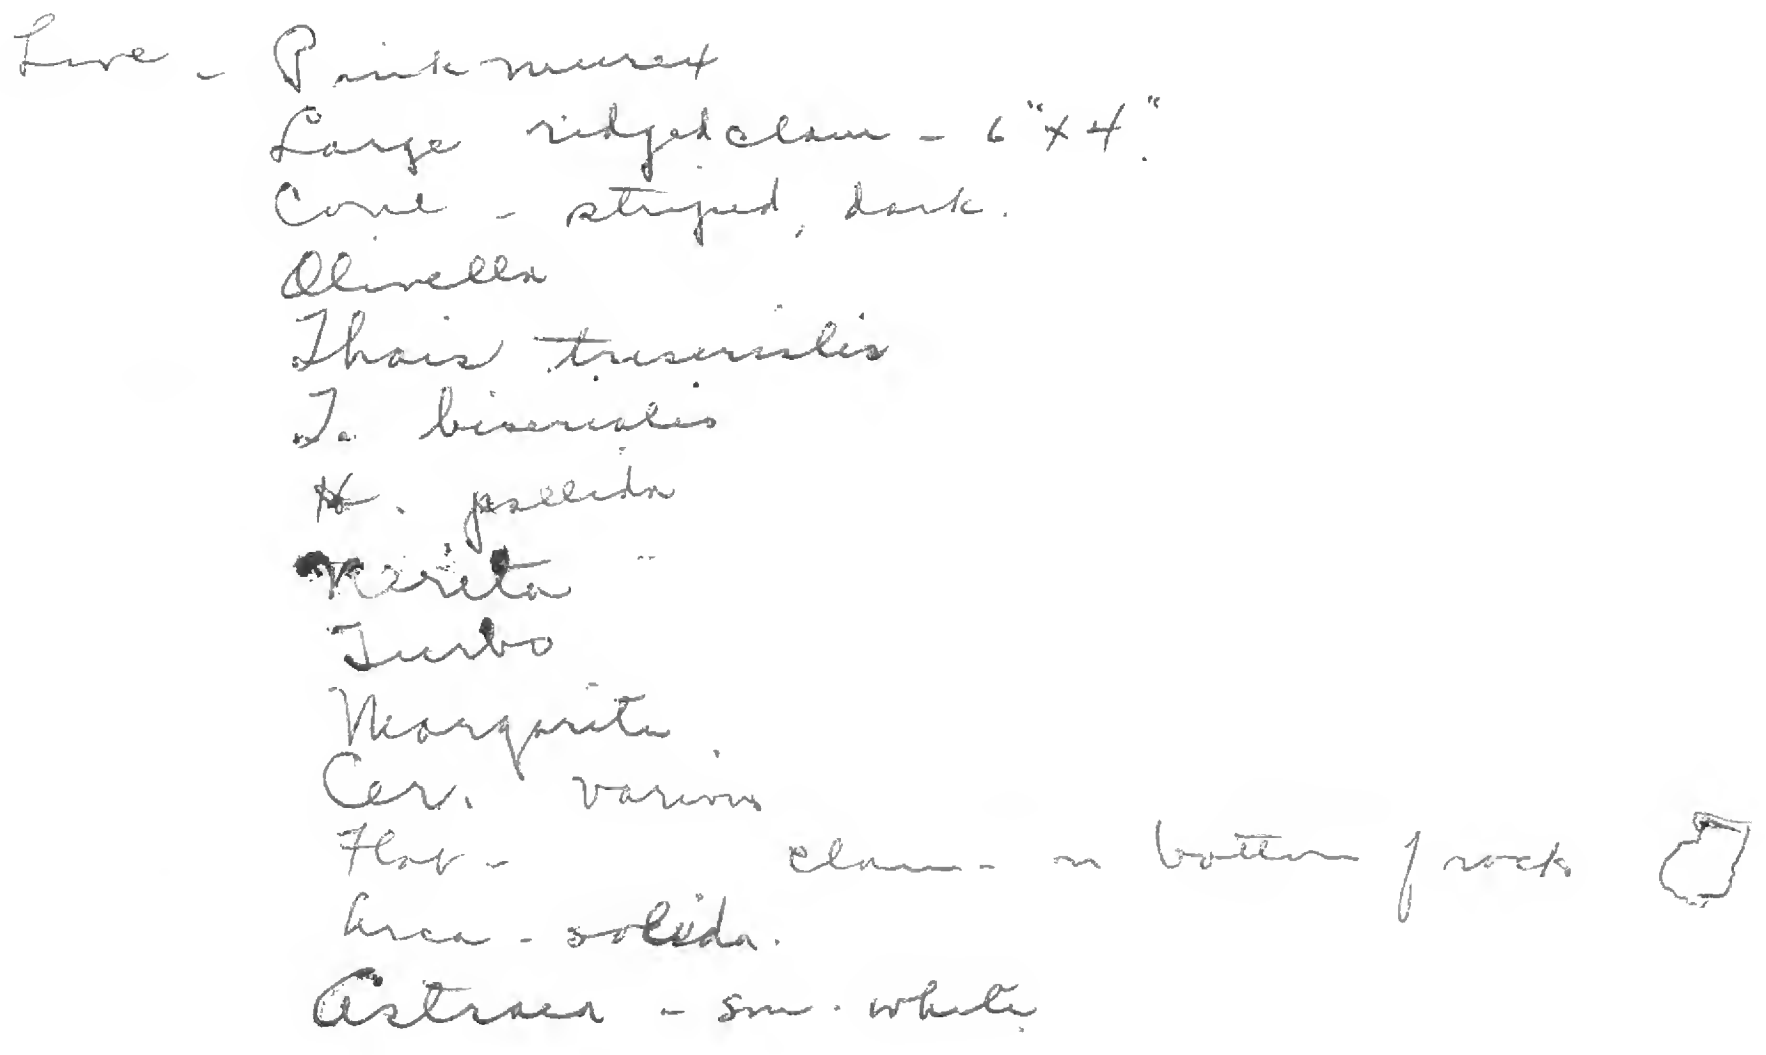 Live - Pink murex
Large ridged clam - 6" x 4".
Cone - striped, dark.
Olivella
Thais triserialis
T. biserialis
H. pallida
Nerita
Turbo
Margarita
Cer. various
Flat - clam - on bottom of rock
Arca - solida.
Astraea - sm. white